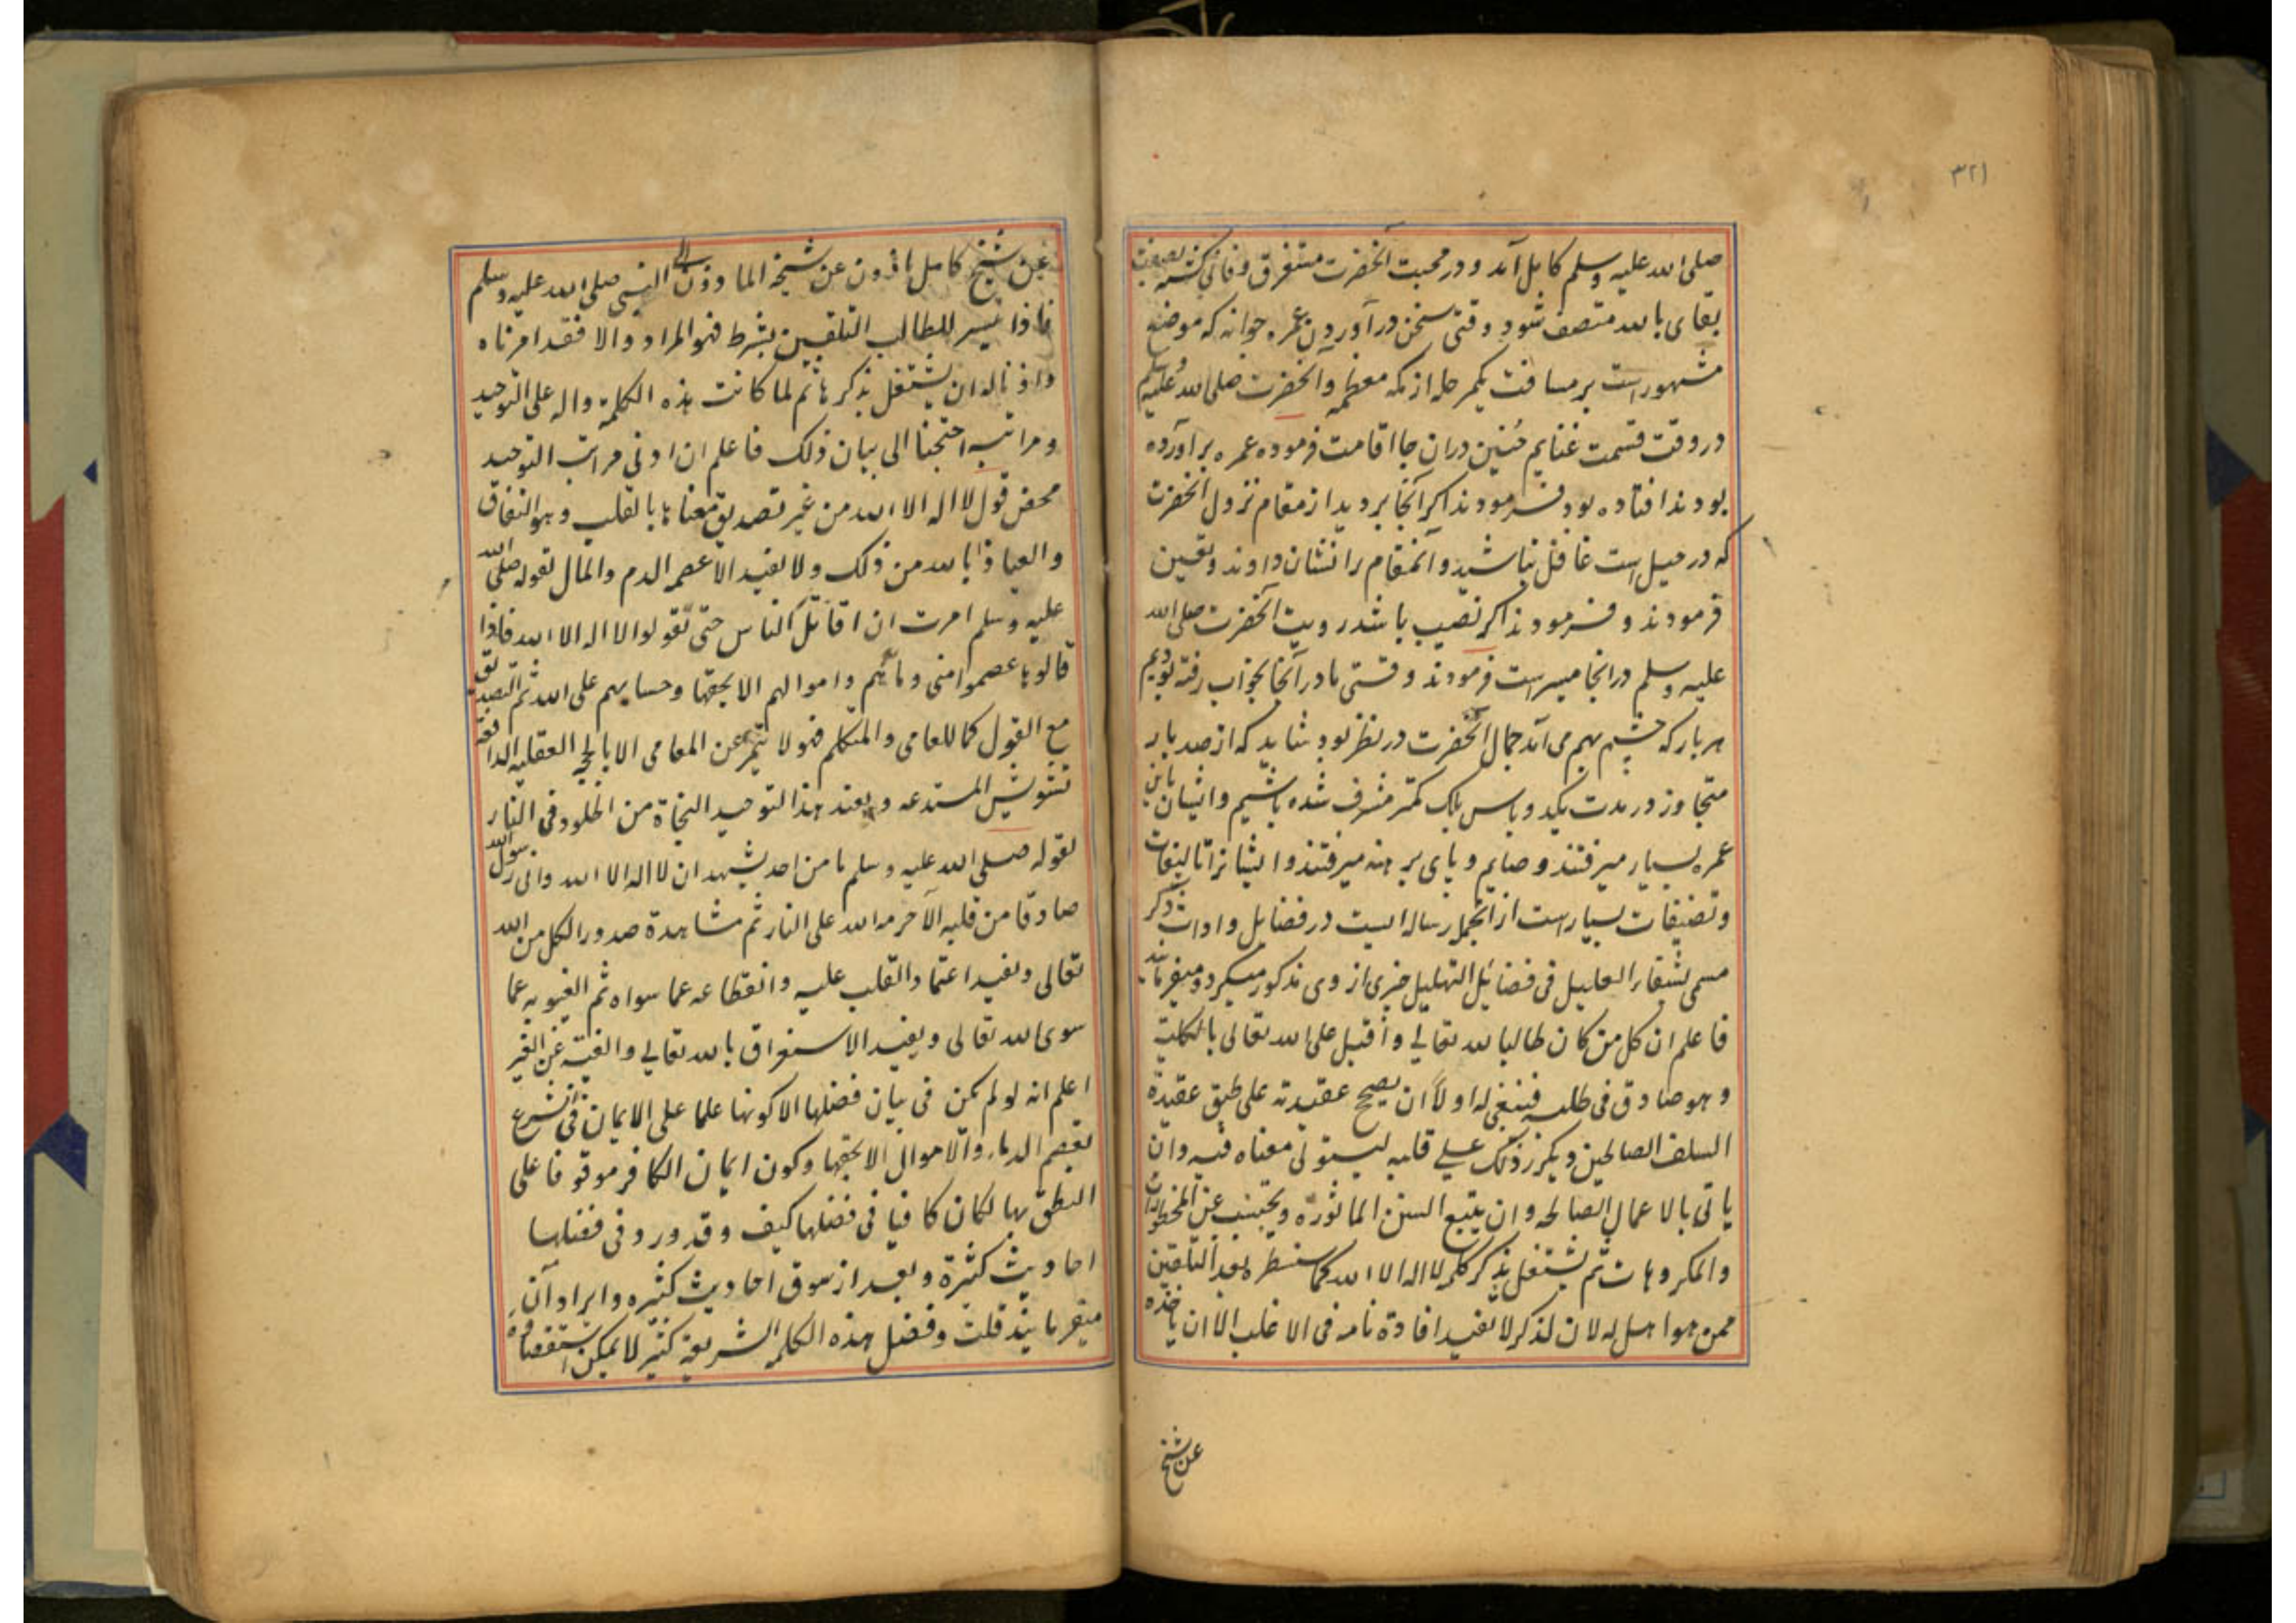 ٣٢١
صلی الله علیه وسلم کامل آمد و در محبت آنحضرت مستغرق و فانی گشته بصفت
بقای بالله متصف شود وقتی سخن در آوردن عمره جوانه که موضع
مشهور است بر مسافت یکمرحله از مکه معظمه و آنحضرت صلی الله علیه وسلم
در وقت قسمت غنایم حُنین دران جا اقامت فرموده عمره برآورده
بودند افتاده بود فرمودند اکر آنجا بروید از مقام نزول آنحضرت
که در جبل است غافل نباشید و آنمقام را نشان دادند و تعین
فرمودند و فرمودند اکر نصیب باشد رویت آنحضرت صلی الله
علیه وسلم در انجا میسر است فرمودند وقتی ما در آنجا بخواب رفته بودیم
هر بار که چشم بهم می آمد جمال آنحضرت در نظر بود شاید که از صد بار
متجاوز در مدت یکد و پاس بلک کمتر مشرف شده باشیم و ایشان باین
عمره بسیار میرفتند و صایم و پای برهنه میرفتند و ایشانرا تالیفات
و تصنیفات بسیار است از انجمله رساله ایست در فضایل و آداب ذکر
مسمی بشفاء العلیل فی فضائل التهلیل چیزی از وی مذکور میکردد میفرمایند
فاعلم ان کل من کان طالبا لله تعالی و اقبل علی الله تعالی بالکلیة
وهو صادق فی طلبه فینبغی له اولاً ان یصحح عقیدته علی طبق عقیدة
السلف الصالحین ویکرر ذلک علی قلبه لیستولی معناه فیه وان
یاتی بالاعمال الصالحه وان یتبع السنن الماثورة ویجتنب عن المحظورات
والمکروهات ثم یشتغل بذکر کلمه لا اله الا الله کما سنسطره بعد التلقین
ممن هوا هل له لان الذکر لا یفید افادة تامه فی الاغلب الا ان یاخذه
عن شیخ
عن شیخ کامل ماذون عن شیخه الماذون الی النبی صلی الله علیه وسلم
فاذا تیسر للطالب التلقین بشرط فهو المراد والا فقد امرناه
واذناله ان یشتغل بذکرها ثم لما کانت هذه الکلمة داله علی التوحید
ومراتبه احتجنا الی بیان ذلک فاعلم ان ادنی مراتب التوحید
محض قول لا اله الا الله من غیر تصدیق معناها بالقلب وهو النفاق
والعیاذ بالله من ذلک ولا یفید الا عصم الدم والمال لقوله صلی الله
علیه وسلم امرت ان اقاتل الناس حتی یقولوا لا اله الا الله فاذا
قالوها عصموا منی دمائهم واموالهم الا بحقها وحسابهم علی الله ثم التصدیق
مع القبول کما للعامی والمتکلم فهو لا یتمیز عن العامی الا بالحجه العقلیه الدافعة
تشویش المبتدعه ویفید هذا التوحید النجاة من الخلود فی النار
لقوله صلی الله علیه وسلم ما من احد یشهد ان لا اله الا الله وانی رسول الله
صادقا من قلبه الا حرمه الله علی النار ثم مشاهدة صدور الکل من الله
تعالی ویفید اعتماد القلب علیه وانقطاعه عما سواه ثم الغیبوبه عما
سوی الله تعالی ویفید الاستغراق بالله تعالی والغیبة عن الغیر
اعلم انه لو لم یکن فی بیان فضلها الا کونها علما علی الایمان فی الشرع
یعصم الدماء والاموال الا بحقها وکون ایمان الکافر موقوفا علی
النطق بها لکان کافیا فی فضلها کیف وقد ورد فی فضلها
احادیث کثیرة وبعد از سوق احادیث کثیره و ایراد آن
میفرمایند قلت وفضل هذه الکلمه الشریفة کثیر لا یمکن استقصاؤه